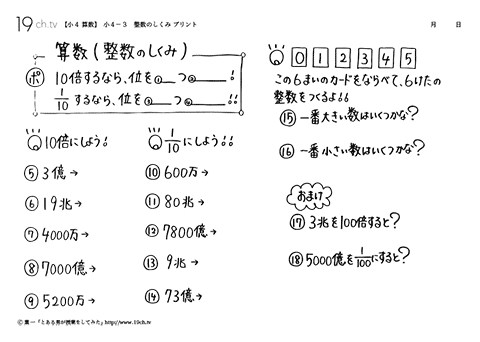 19ch.tv 【小4 算数】 小4－3 整数のしくみ プリント 月 日
算数(整数のしくみ)
ポ 10倍するなら、位を①___つ②______!
1/10するなら、位を③___つ④______!!
10倍にしよう!
⑤3億→
⑥19兆→
⑦4000万→
⑧7000億→
⑨5200万→
1/10にしよう!!
⑩600万→
⑪80兆→
⑫7800億→
⑬9兆→
⑭73億→
0 1 2 3 4 5
この6まいのカードをならべて、6けたの
整数をつくるよ!!
⑮一番大きい数はいくつかな?
⑯一番小さい数はいくつかな?
おまけ
⑰3兆を100倍すると?
⑱5000億を1/100にすると?
Ⓒ葉一「とある男が授業をしてみた」http://www.19ch.tv